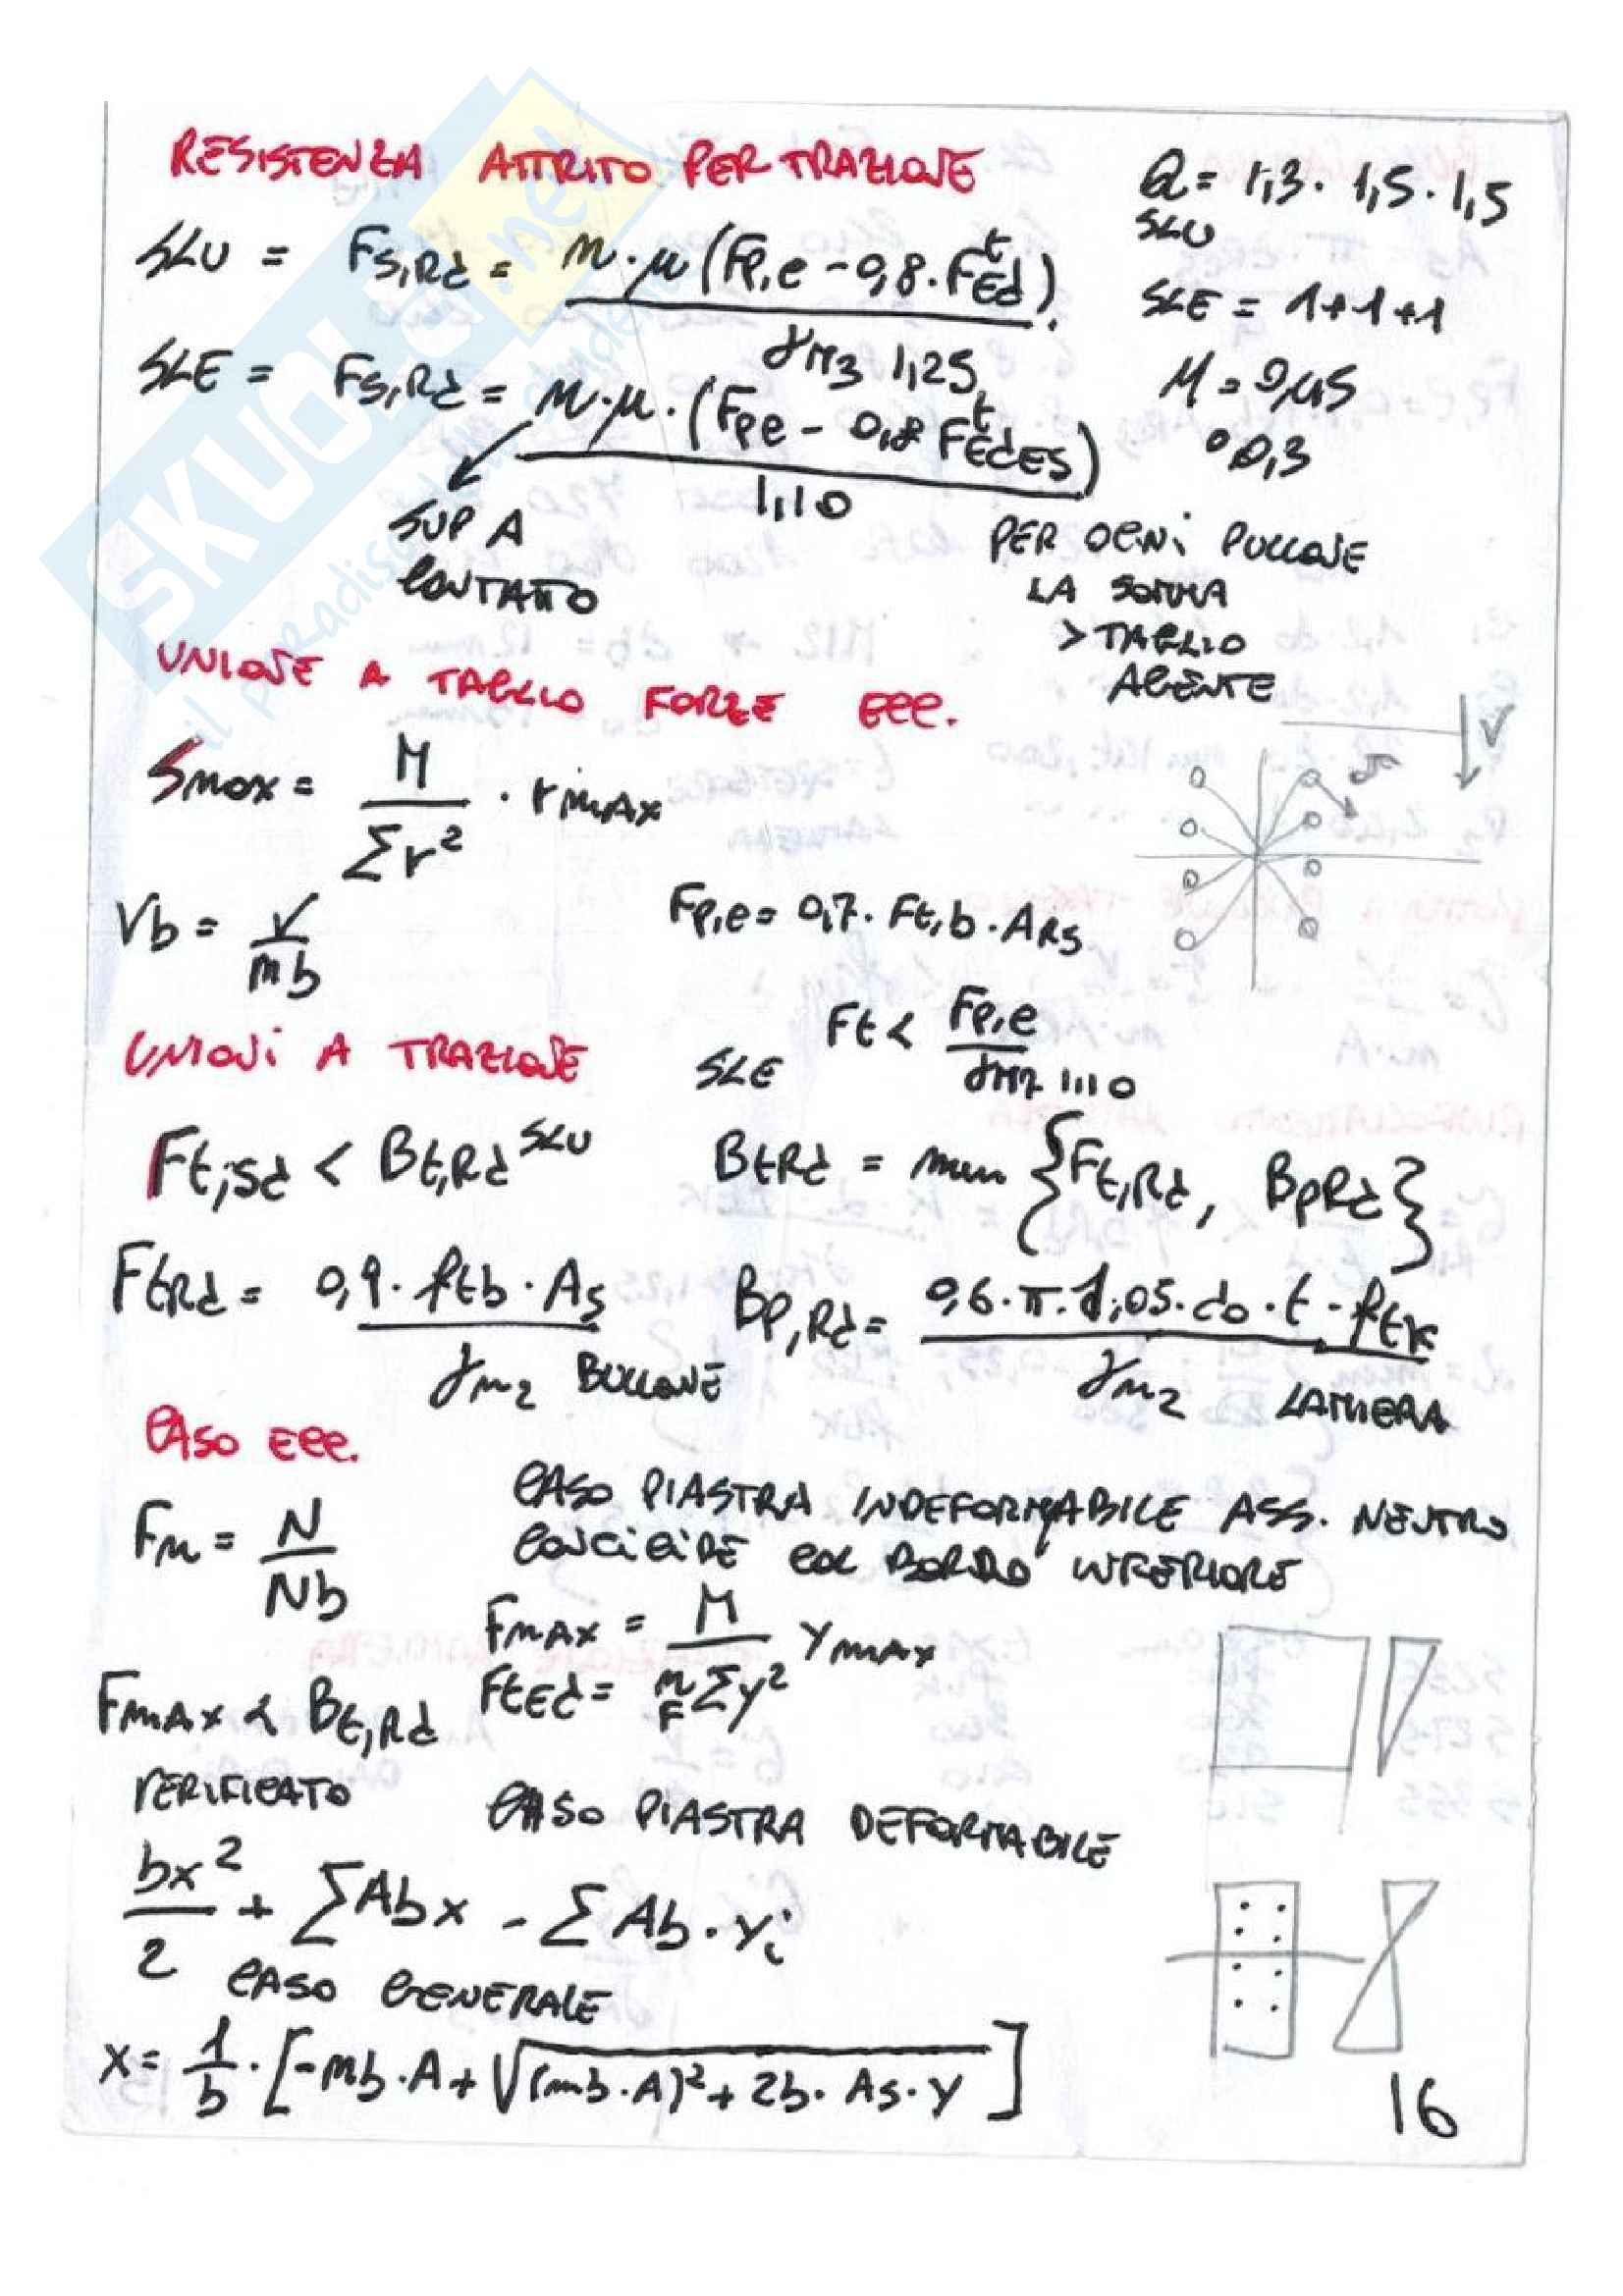 RESISTENZA ATTRITO PER TRAZIONE
Q = 1,3 · 1,5 · 1,5
SLU
SLU = Fs,Rd = n·μ (Fp,c - 0,8·F^t Ed)
γM3 1,25
SLE = 1+1+1
SLE = Fs,Rd = n·μ·(Fpc - 0,8 F^t EdES)
1,10
μ = 0,45
o 0,3
SUP A
CONTATTO
PER OGNI BULLONE
LA SOMMA
> TAGLIO
AGENTE
UNIONE A TAGLIO FORZE ECC.
V
Smax = M / Σr² · rmAx
Vb = V / mb
Fp,c = 0,7 · Ft,b · ARS
UNIONI A TRAZIONE
SLE Ft < Fp,c / γM7 1,10
Ft,sd < Bt,Rd SLU
BtRd = min {Ft,Rd, BpRd}
FtRd = 0,9 · ftb · As / γm2 BULLONE
Bp,Rd = 0,6·π·1,05·do·t·ftk / γm2 LAMIERA
CASO ECC.
Fm = N / Nb
CASO PIASTRA INDEFORMABILE ASS. NEUTRO
COINCIDE COL BORDO INFERIORE
FmAx = M / Σy² YmAx
FtEd = n F
FmAx < Bt,Rd
VERIFICATO
CASO PIASTRA DEFORMABILE
bx² / 2 + ΣAbx - ΣAb·yi
CASO GENERALE
x = 1/b · [-mb·A + √(mb·A)² + 2b·As·y]
16
SKUOLA.net
il paradiso dello studente